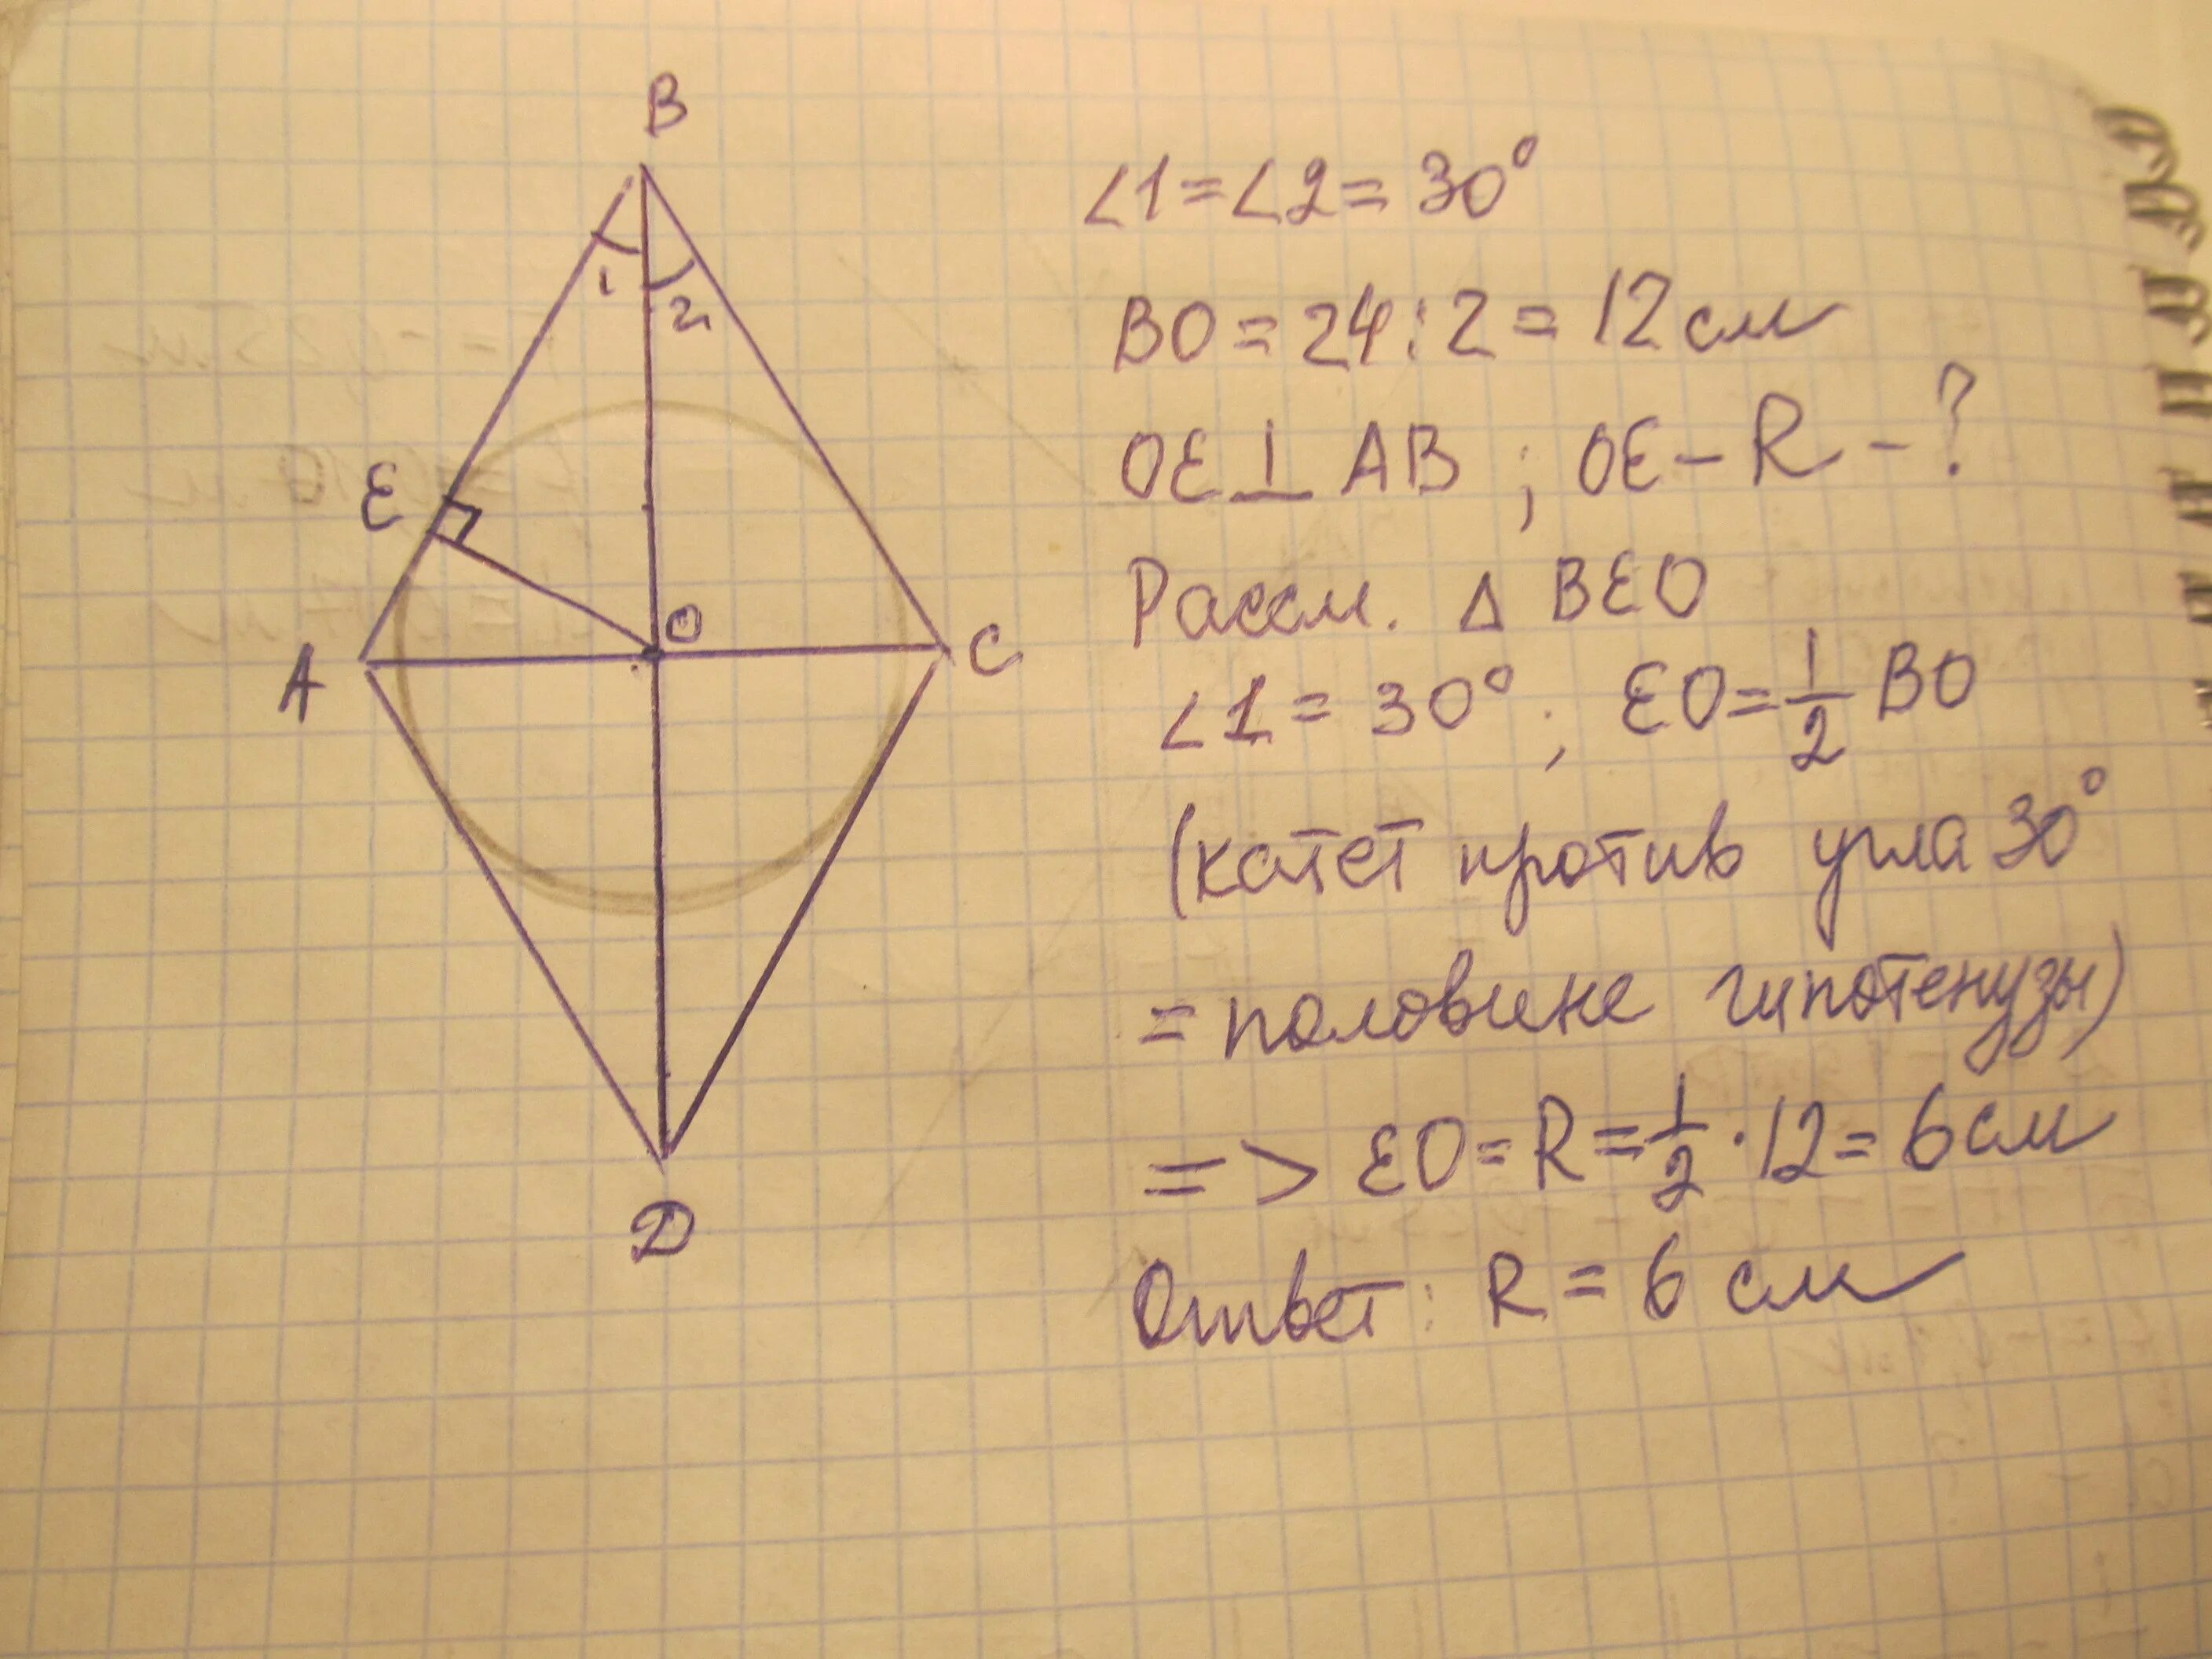 B
1
2
E
O
A
C
D
∠1=∠2=30°
BO=24:2=12см
OE⊥AB ; OE-R-?
Рассм. Δ BEO
∠1=30° ; EO=1/2 BO
(катет против угла 30°
=половине гипотенузы)
=> EO=R=1/2·12=6см
Ответ: R=6 см